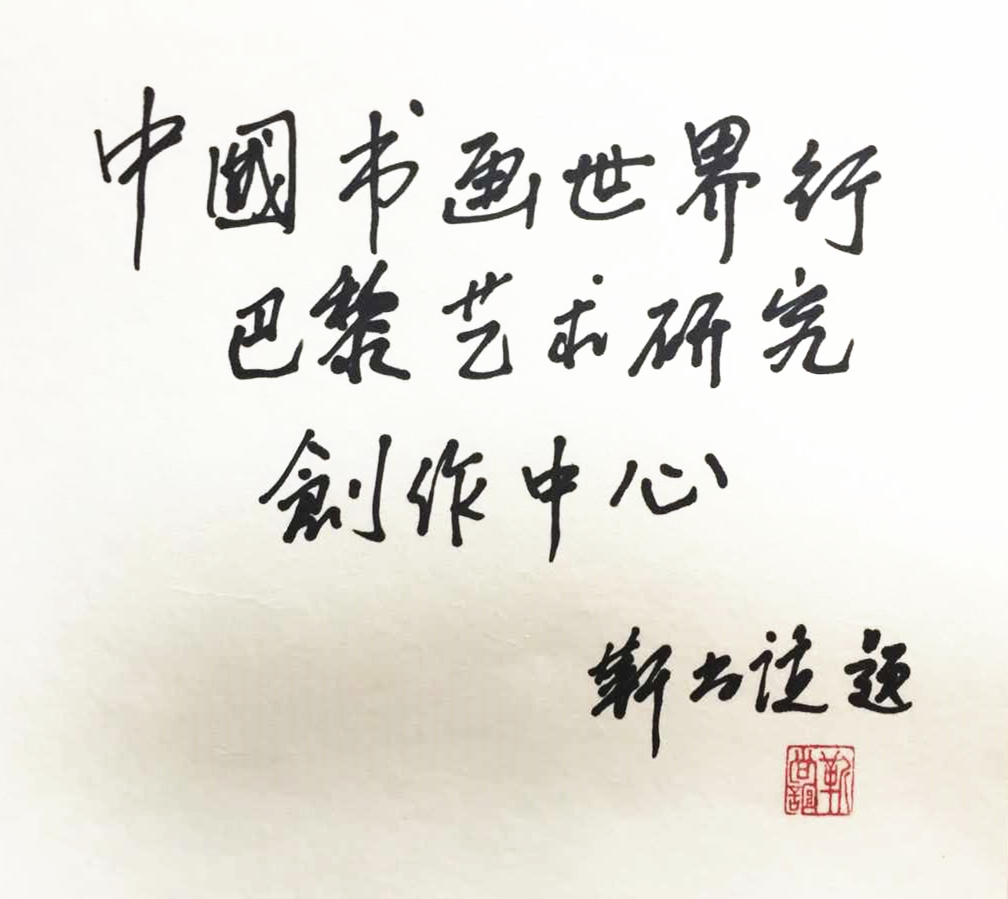 中國书画世界行
巴黎艺术研究
創作中心
靳尚谊题
靳尚誼